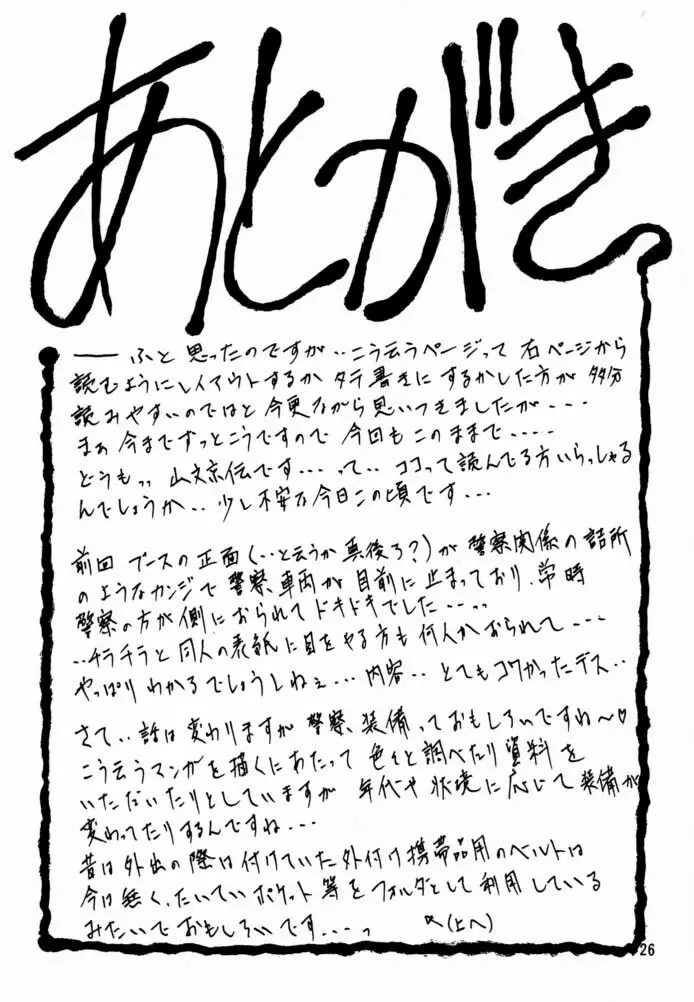 あとがき
── ふと 思ったのですが‥こう云うページって 右ページから
読むようにレイアウトするか タテ書きに するかした方が 多分
読みやすいのではと 今更ながら思いつきましたが---
まぁ 今までずっとこうですので 今回も このままで-----
どうもっっ 山文京伝です---って‥ ココって読んでる方いらっしゃる
んでしょうか‥少し不安な今日この頃です---
前回 ブースの正面(‥と云うか真後ろ?)が 警察関係の詰所
のようなカンジで 警察車両が目前に止まっており、常時
警察の方が側におられて ドキドキでした--っっ
‥チラチラと 同人の表紙に目をやる方も 何人かおられて---
やっぱり わかるでしょうしねぇ---内容‥ とてもコワかったデス‥
さて‥話は変わりますが 警察装備っておもしろいですね〜♡
こう云うマンガを描くにあたって 色々と調べたり資料を
いただいたりとしていますが 年代や状境に応じて装備が
変わってたりするんですね---
昔は外出の際は付けていた外付け携帯品用のベルトは
今は無く、たいていポケット等をフォルダとして利用している
みたいで おもしろいです---っ (上へ)
26